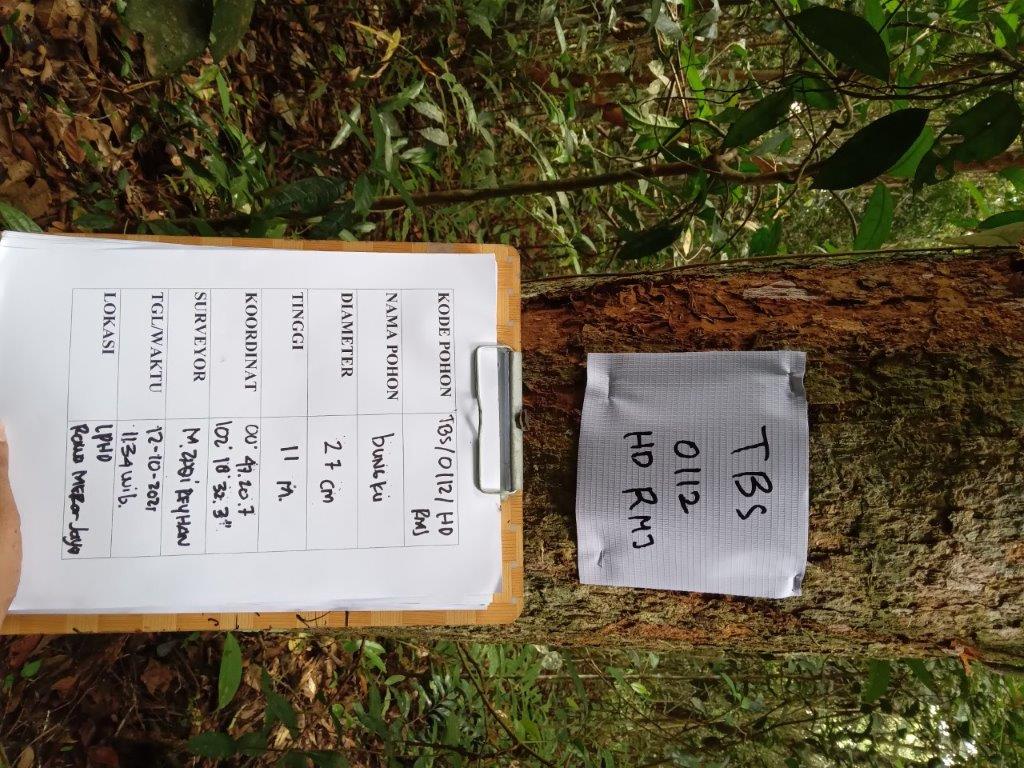 TBS
0112
HD RMJ
KODE POHON TBS/0112/ HD
RMJ
NAMA POHON bUNGKU
DIAMETER 27 cm
TINGGI 11 m.
KOORDINAT 00° 47.20.7
102° 18' 32.3"
SURVEYOR M. ZAQI REYHAN
TGL/WAKTU 12-10-2021
11.34 wib.
LOKASI LPHD
MERar Jaya